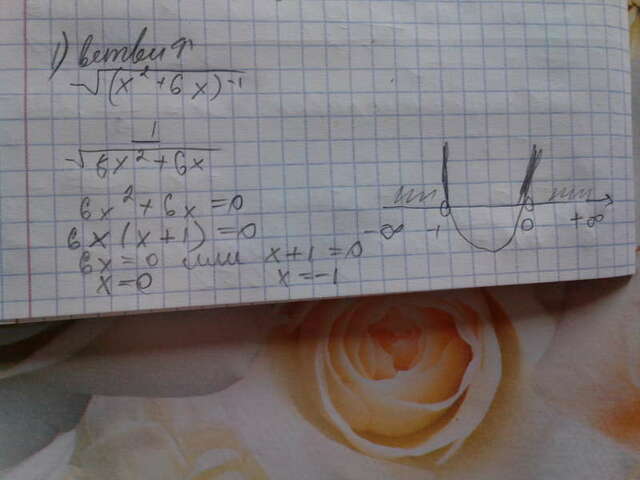 1) ветви ↑
√(x² + 6x)⁻¹
1
√6x² + 6x
6x² + 6x = 0
6x (x + 1) = 0
6x = 0 или x + 1 = 0
x = 0 x = -1
-∞ -1 0 +∞